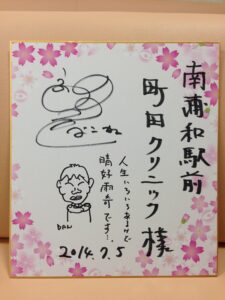 南浦和駅前
町田クリニック様
人生いろいろあるけど
晴好雨奇です…
2014.7.5